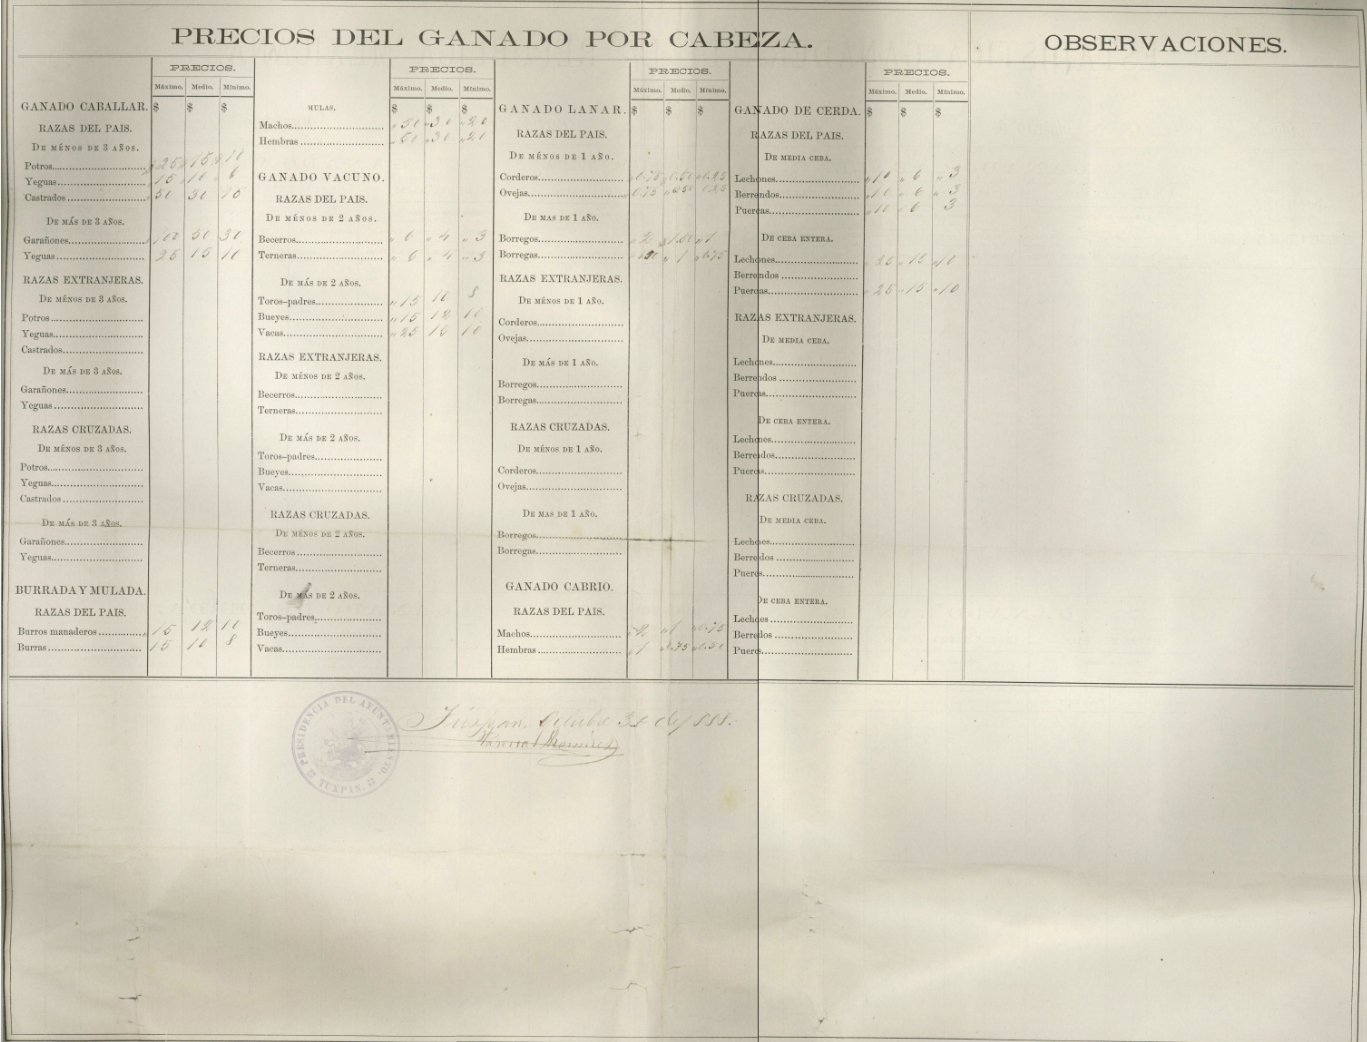 PRECIOS DEL GANADO POR CABEZA.
OBSERVACIONES.
PRECIOS.
Máximo. Medio. Mínimo.
GANADO CABALLAR. $ $ $
RAZAS DEL PAIS.
DE MÉNOS DE 3 AÑOS.
Potros 25 15 10
Yeguas 15 10 6
Castrados 50 30 15
DE MÁS DE 3 AÑOS.
Garañones 100 50 30
Yeguas 25 15 10
RAZAS EXTRANJERAS.
DE MÉNOS DE 3 AÑOS.
Potros
Yeguas
Castrados
DE MÁS DE 3 AÑOS.
Garañones
Yeguas
RAZAS CRUZADAS.
DE MÉNOS DE 3 AÑOS.
Potros
Yeguas
Castrados
DE MÁS DE 3 AÑOS.
Garañones
Yeguas
BURRADA Y MULADA.
RAZAS DEL PAIS.
Burros manaderos 15 12 10
Burras 15 10 8
PRECIOS.
Máximo. Medio. Mínimo.
MULAS. $ $ $
Machos 50 30 20
Hembras 50 30 20
GANADO VACUNO.
RAZAS DEL PAIS.
DE MÉNOS DE 2 AÑOS.
Becerros 6 4 3
Terneras 6 4 3
DE MÁS DE 2 AÑOS.
Toros-padres 15 10 8
Bueyes 15 12 10
Vacas 25 10
RAZAS EXTRANJERAS.
DE MÉNOS DE 2 AÑOS.
Becerros
Terneras
DE MÁS DE 2 AÑOS.
Toros-padres
Bueyes
Vacas
RAZAS CRUZADAS.
DE MÉNOS DE 2 AÑOS.
Becerros
Terneras
DE MÁS DE 2 AÑOS.
Toros-padres
Bueyes
Vacas
PRECIOS.
Máximo. Medio. Mínimo.
GANADO LANAR. $ $ $
RAZAS DEL PAIS.
DE MÉNOS DE 1 AÑO.
Corderos 0.75 0.50 0.25
Ovejas 0.75 0.50 0.25
DE MAS DE 1 AÑO.
Borregos 2 1
Borregas 1 0.75
RAZAS EXTRANJERAS.
DE MÉNOS DE 1 AÑO.
Corderos
Ovejas
DE MÁS DE 1 AÑO.
Borregos
Borregas
RAZAS CRUZADAS.
DE MÉNOS DE 1 AÑO.
Corderos
Ovejas
DE MAS DE 1 AÑO.
Borregos
Borregas
GANADO CABRIO.
RAZAS DEL PAIS.
Machos 2 1 0.75
Hembras 1 0.75 0.50
PRECIOS.
Máximo. Medio. Mínimo.
GANADO DE CERDA. $ $ $
RAZAS DEL PAIS.
DE MEDIA CEBA.
Lechones 10 6 3
Berrendos 10 6 3
Puercas 10 6 3
DE CEBA ENTERA.
Lechones 25 15 10
Berrendos
Puercas 25 15 10
RAZAS EXTRANJERAS.
DE MEDIA CEBA.
Lechones
Berrendos
Puercas
DE CEBA ENTERA.
Lechones
Berrendos
Puercas
RAZAS CRUZADAS.
DE MEDIA CEBA.
Lechones
Berrendos
Puercas
DE CEBA ENTERA.
Lechones
Berrendos
Puercas
PRESIDENCIA DEL AYUNTAMIENTO.
TUXPAN.
Túxpan. Octubre 31 de 1888.
Ramirez